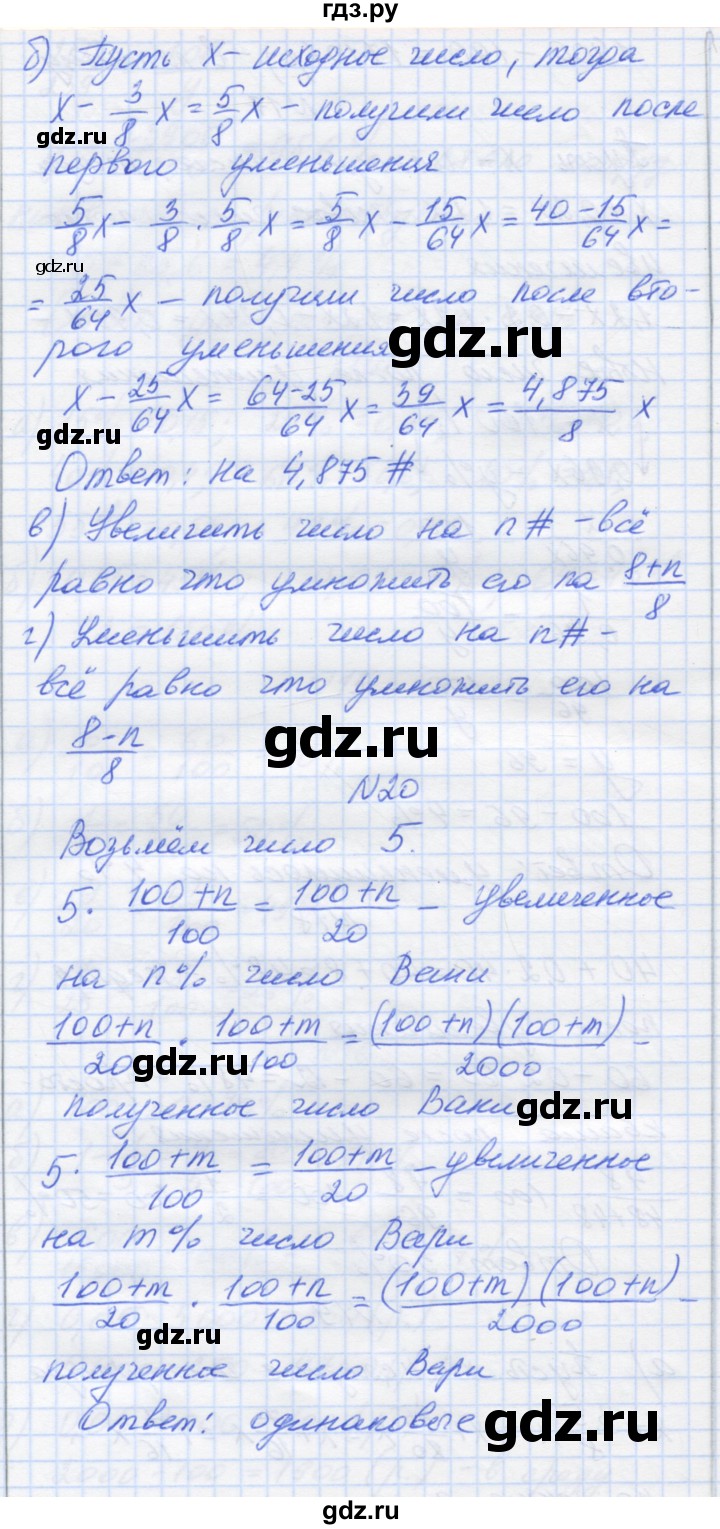 гдз.ру
б) Пусть х - исходное число, тогда
х - 3/8 х = 5/8 х - получили число после
gdz.ru
первого уменьшения
5/8 х - 3/8 · 5/8 х = 5/8 х - 15/64 х = (40-15)/64 х =
gdz.ru
= 25/64 х - получили число после вто-
gdz.ru
рого уменьшения
х - 25/64 х = (64-25)/64 х = 39/64 х = 4,875/8 х
gdz.ru
Ответ: на 4,875 #
в) Увеличить число на n# - всё
равно что умножить его на (8+n)/8
г) Уменьшить число на n# -
всё равно что умножить его на
(8-n)/8
gdz.ru
N20
Возьмём число 5.
5. (100+n)/100 = (100+n)/20 - увеличенное
на n% число Вани
(100+n)/20 · (100+m)/100 = (100+n)(100+m)/2000 -
gdz.ru
полученное число Вани
gdz.ru
5. (100+m)/100 = (100+m)/20 - увеличенное
на m% число Вари
(100+m)/20 · (100+n)/100 = (100+m)(100+n)/2000 -
gdz.ru
полученное число Вари
Ответ: одинаковые
gdz.ru
gdz.ru